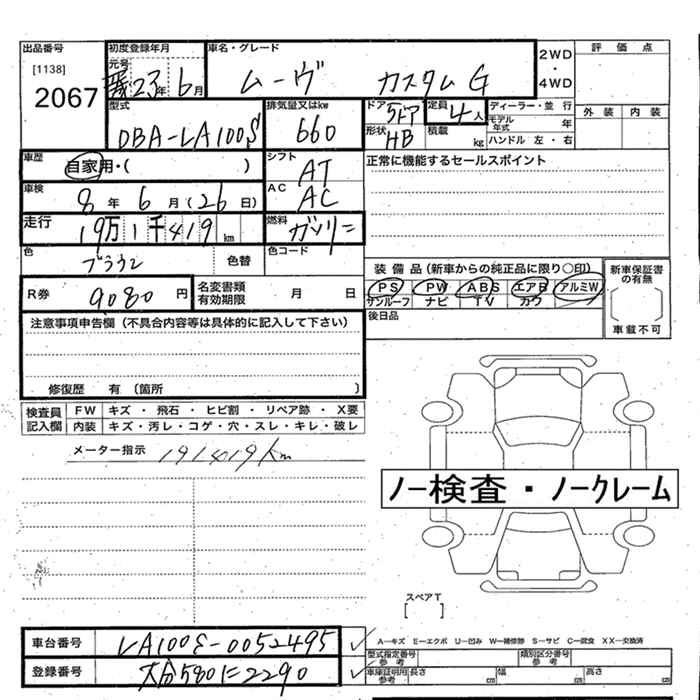 出品番号 [1138] 2067
初度登録年月 元号 23年 6月
車名・グレード ムーヴ カスタム G
2WD・4WD
評価点
外装 内装
型式 DBA-LA100S
排気量又はkw 660
ドア 5ドア
形状 HB
定員 4人
積載 kg
ディーラー・並行
モデル年式 年
ハンドル 左・右
車歴 自家用・( )
シフト AT
車検 8年 6月 (26日)
AC AC
正常に機能するセールスポイント
走行 19万1千419km
燃料 ガソリン
色 ブラウン 色替
色コード
R券 9080円
名変書類有効期限 月 日
装備品(新車からの純正品に限り○印)
PS PW ABS エアB アルミW
サンルーフ ナビ TV カワ
新車保証書の有無
車載不可
後日品
注意事項申告欄(不具合内容等は具体的に記入して下さい)
修復歴 有 (箇所 )
検査員記入欄
FW キズ・飛石・ヒビ割・リペア跡・X要
内装 キズ・汚レ・コゲ・穴・スレ・キレ・破レ
メーター指示 191419km
ノー検査・ノークレーム
スペアT
[ ]
車台番号 LA100S-0052495
登録番号 大分580に2290
A-キズ E-エクボ U-凹み W-補修跡 S-サビ C-腐食 XX-交換済
型式指定番号 参考
類別区分番号 参考
車庫証明用 参考 長さ cm 幅 cm 高さ cm